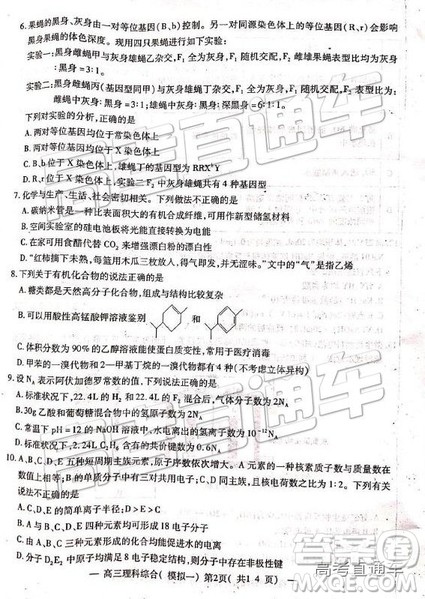 6.果蝇的黑身、灰身由一对等位基因(B、b)控制。另一对同源染色体上的等位基因(R、r)会影响
黑身果蝇的体色深度。现用四只果蝇进行如下实验:
实验一:黑身雌蝇甲与灰身雄蝇乙杂交,F₁全为灰身,F₁随机交配,F₂雌雄果蝇表型比均为灰身
:黑身=3:1。
实验二:黑身雌蝇丙(基因型同甲)与灰身雄蝇丁杂交,F₁全为灰身,F₁随机交配,F₂表型比为:
雌蝇中灰身:黑身=3:1;雄蝇中灰身:黑身:深黑身=6:1:1。
下列对实验的分析,正确的是
A.两对等位基因均位于常染色体上
B.两对等位基因均位于X染色体上
D.B、b位于X染色体上,雄蝇丁的基因型为RRXᴮY
D.R、r位于X染色体上,实验二F₂中灰身雄蝇共有4种基因型
7.化学与生产、生活、社会密切相关。下列做法不正确的是
A.碳纳米管是一种比表面积大的有机合成纤维,可用作新型储氢材料
B.空间实验室的硅电池板将光能直接转换为电能
C.在家可用食醋代替CO₂来增强漂白粉的漂白性
D.“红柿摘下未熟,每篮用木瓜三枚放入,得气即发,并无涩味。”文中的“气”是指乙烯
8.下列关于有机化合物的说法正确的是
A.糖类都是天然高分子化合物,组成与结构比较复杂
B.可以用酸性高锰酸钾溶液鉴别 和
C.体积分数为90%的乙醇溶液能使蛋白质变性,常用于医疗消毒
D.甲苯的一溴代物和2-甲基丁烷的一溴代物都有4种(不考虑立体异构)
9.设Nᴀ表示阿伏加德罗常数的值,下列说法正确的是
B.30g乙酸和葡萄糖混合物中的氢原子数为2Nᴀ
C.常温下pH=12的NaOH溶液中,水电离出的氢离子数为10⁻¹²Nᴀ
10.A、B、C、D、E五种短周期主族元素,原子序数依次增大。A元素的一种核素质子数与质量数在
数值上相等,B的单质分子中有三对共用电子对,C、D同主族,且核电荷数之比为1:2。下列有关
说法不正确的是
A.C、D、E的简单离子半径:D>E>C
B.A与B、C、D、E四种元素均可形成18电子分子
C.由A、B、C三种元素形成的化合物均能促进水的电离
D.分子D₂E₂中原子均满足8电子稳定结构,则分子中存在非极性键
— 高三理科综合(模拟一)第2页(共14页) —
高考直通车
答案圈
高考直通车